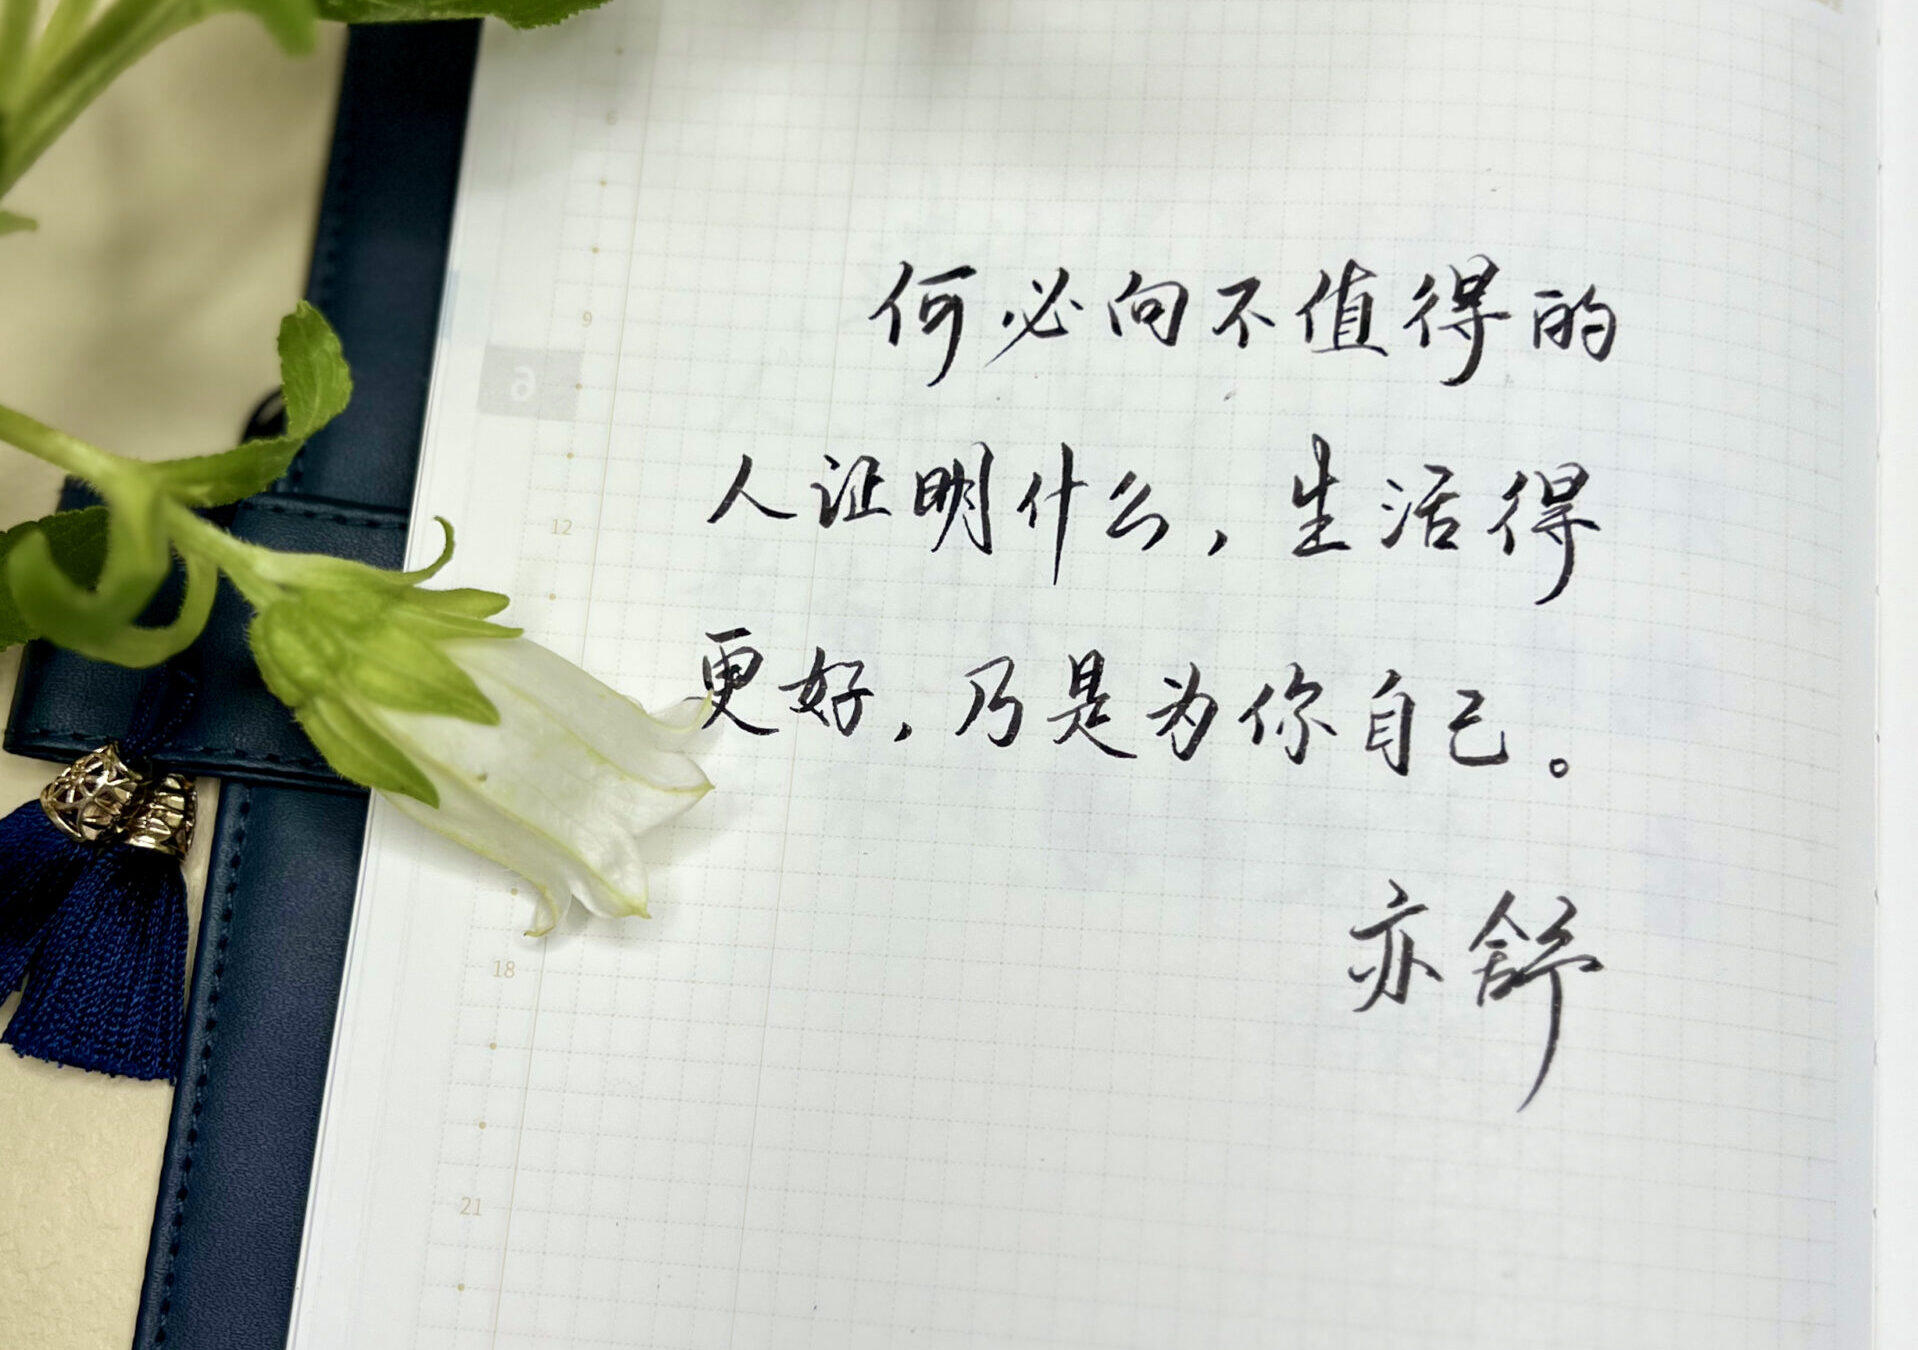 6
9
何必向不值得的
6
12
人证明什么，生活得
更好，乃是为你自己。
亦舒
18
21